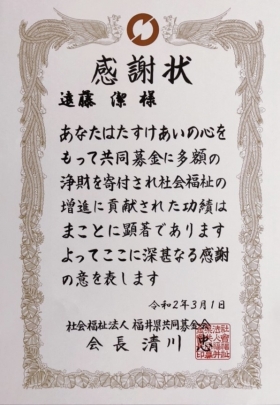 感謝状
遠藤 潔 様
あなたはたすけあいの心を
もって共同募金に多額の
浄財を寄付され社会福祉の
増進に貢献された功績は
まことに顕著であります
よってここに深甚なる感謝
の意を表します
令和2年3月1日
社会福祉法人 福井県共同募金会
会長 清川 忠